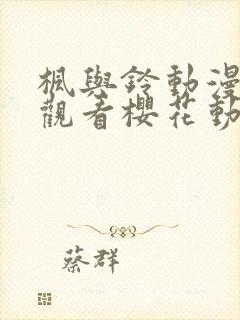 楓與鈴動漫
觀看櫻花動
蔡群